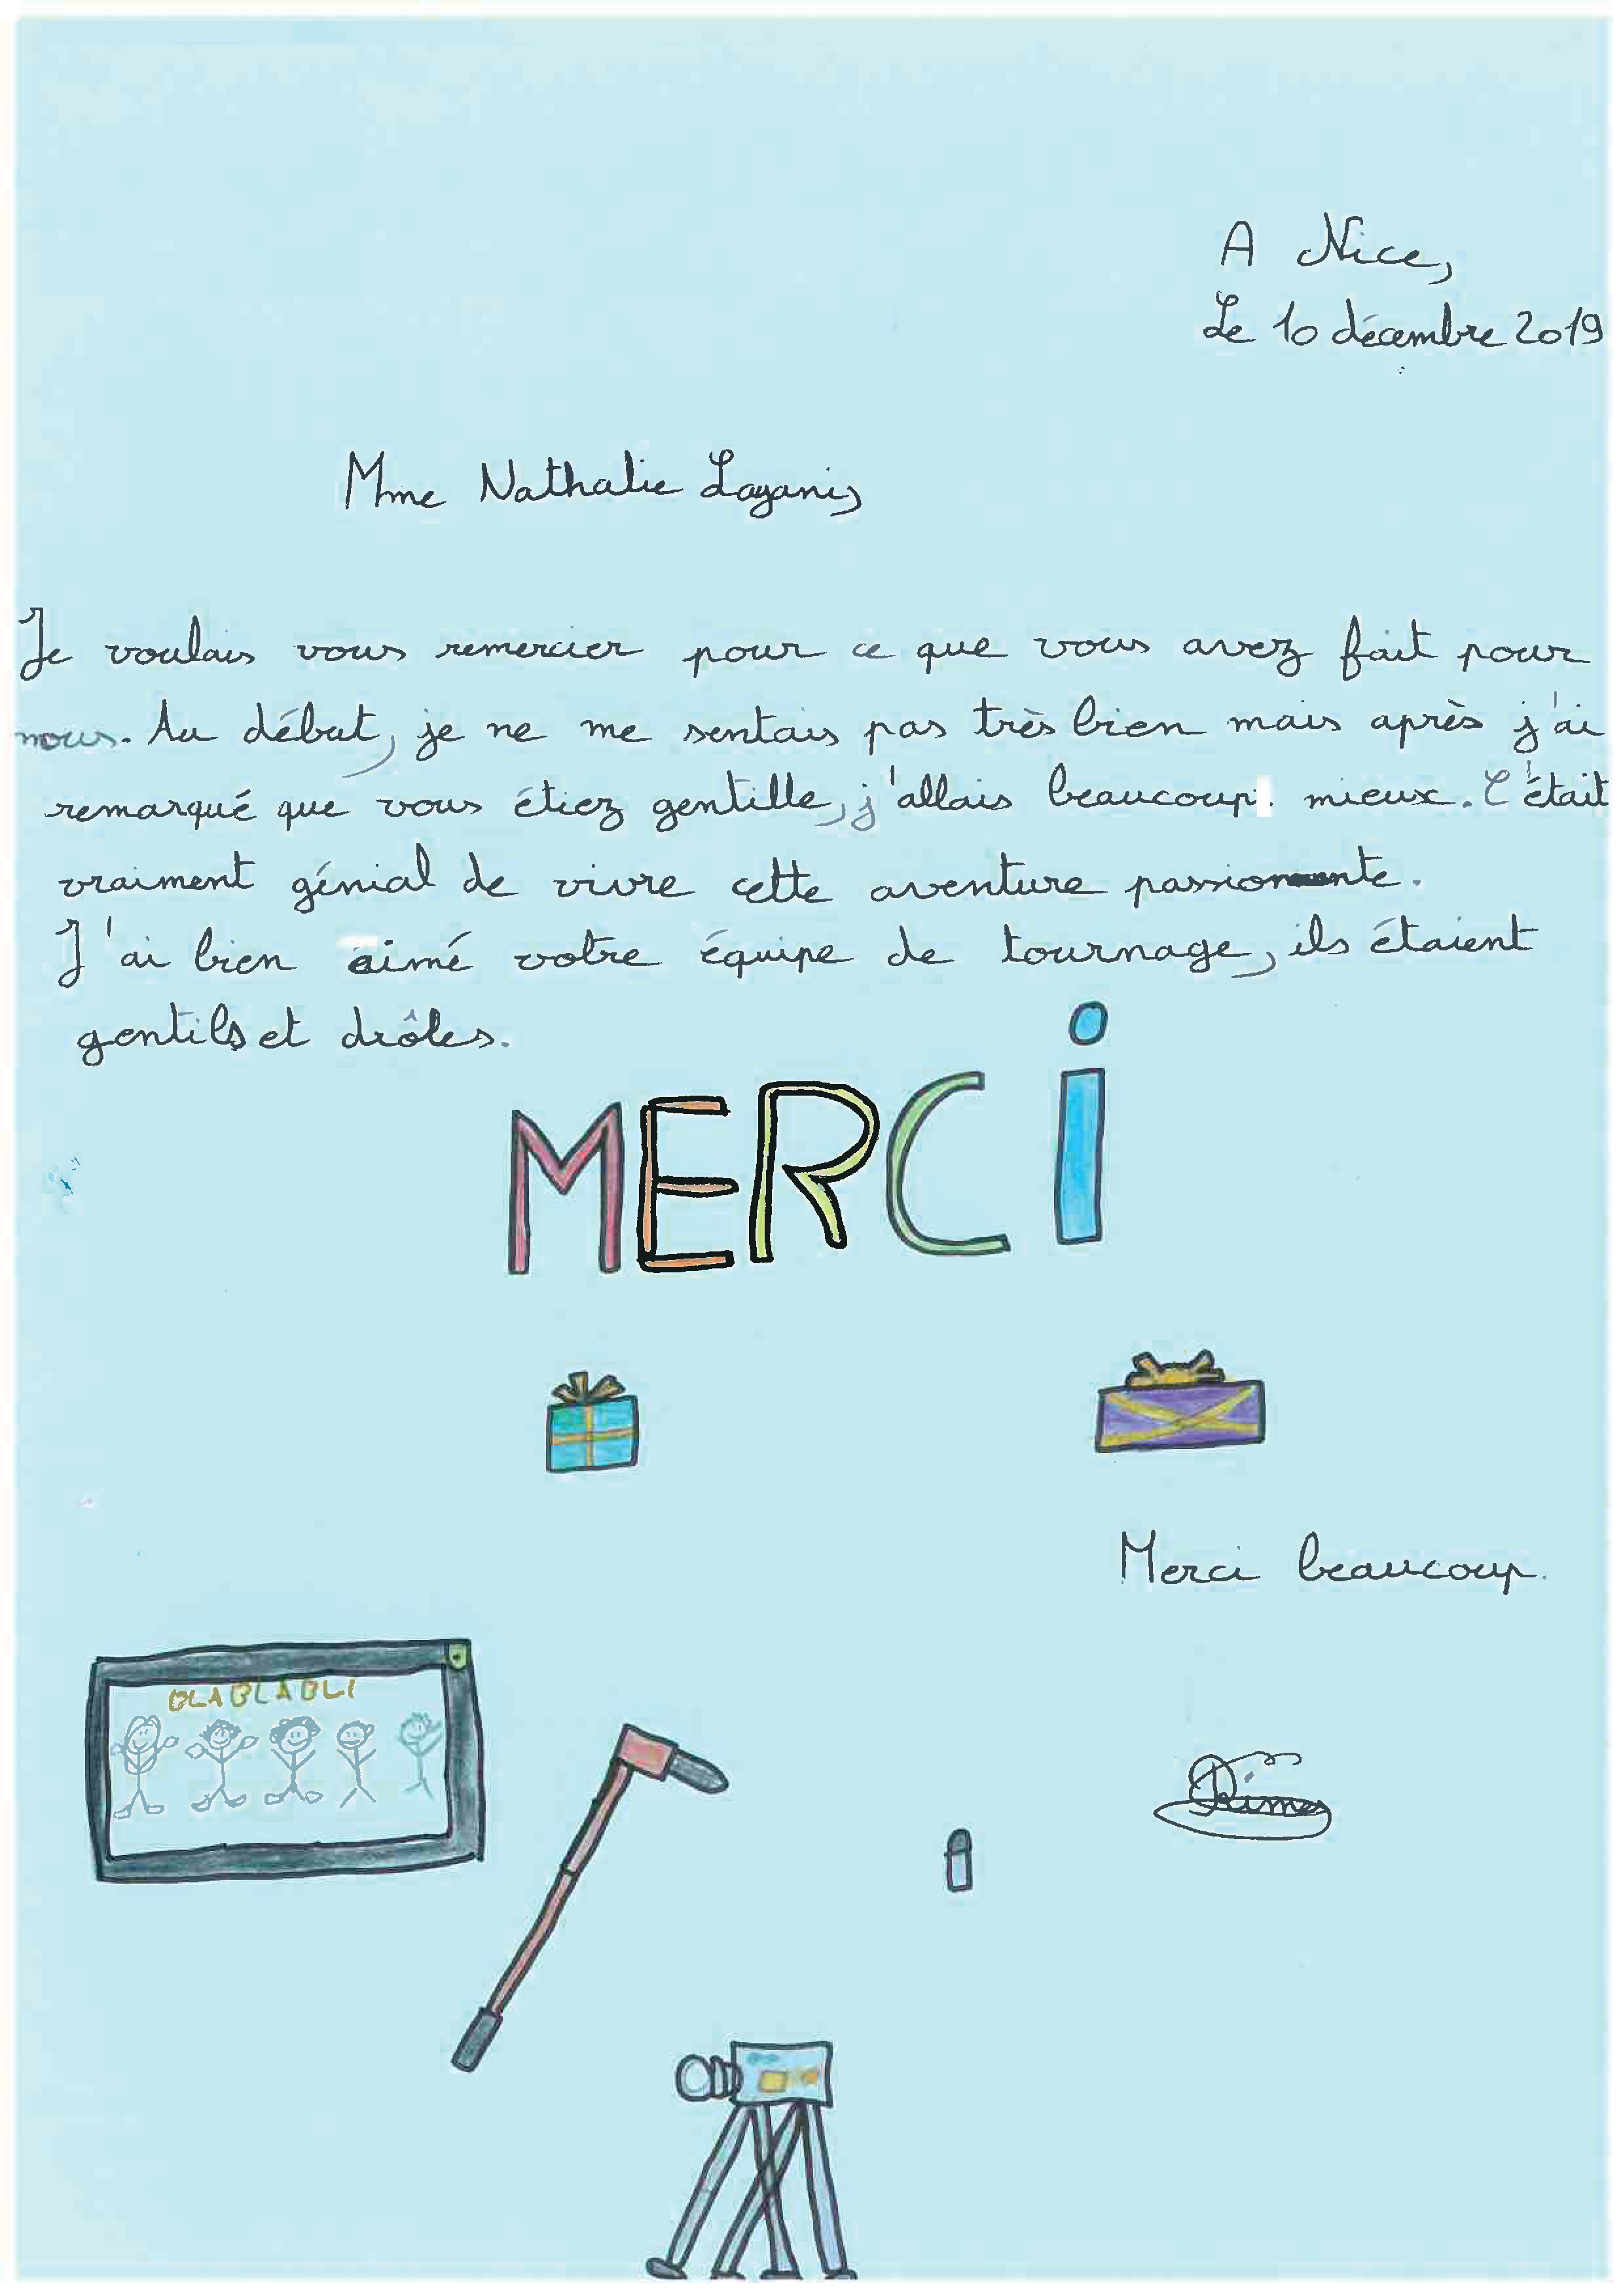 A Nice,
Le 10 décembre 2019
Mme Nathalie Layani,
Je voulais vous remercier pour ce que vous avez fait pour
nous. Au début, je ne me sentais pas très bien mais après j'ai
remarqué que vous étiez gentille, j'allais beaucoup mieux. C'était
vraiment génial de vivre cette aventure passionnante.
J'ai bien aimé votre équipe de tournage, ils étaient
gentils et drôles.
MERCi
Merci beaucoup.
BLABLABLI